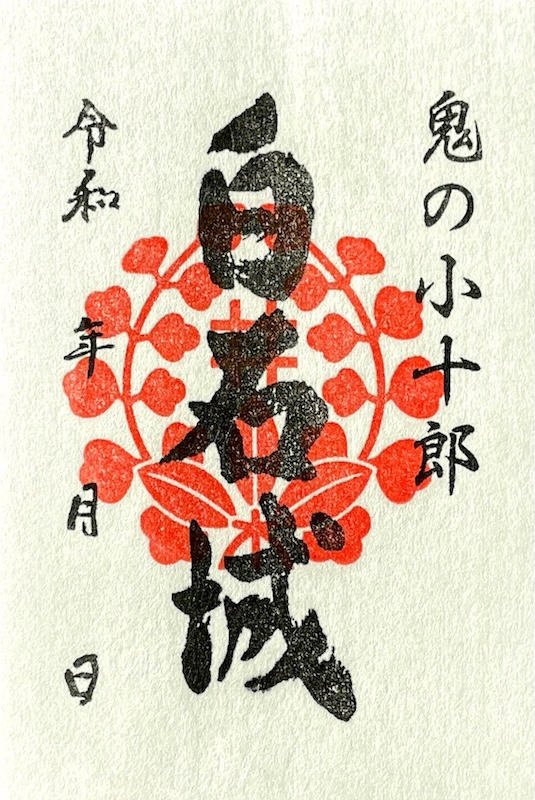 鬼の小十郎
白石城
令和 年 月 日